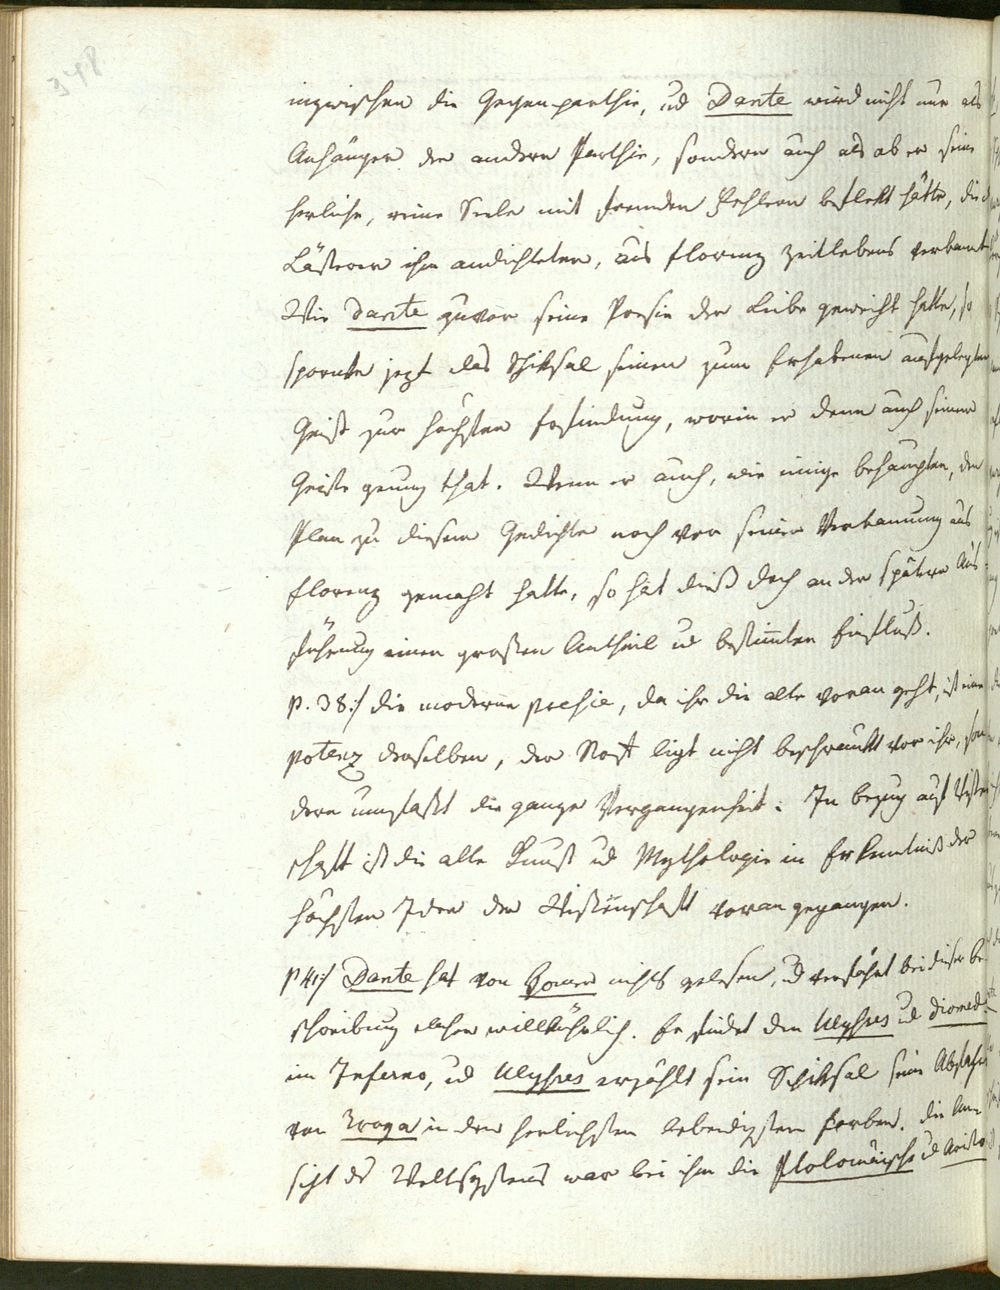 348
inzwischen die Gegenparthie, ud Dante wird nicht nur als
Anhänger der andern Parthie, sondern auch als ob er seine
herliche, reine Seele mit fremden Fehlern beflekt hätte, die d
Lästerer ihm andichteten, aus Florenz zeitlebens verbannt
Wie Dante zuvor seine Poesie der Liebe geweiht hatte, so
spornte jezt das Schiksal seinen zum Erhabenen aufgelegten
Geist zur höchsten Erfindung, worin er denn auch seinem
Geiste genug that. Wenn er auch, wie einige behaupten, den
Plan zu diesem Gedichte noch vor seiner Verbannung aus
Florenz gemacht hatte, so hat dieß doch an der spätern Aus-
führung einen großen Antheil ud bestim̄ten Einfluß.
p. 38:/ die moderne poesie, da ihr die alte voran geht, ist eine
potenz derselben, der Stoff ligt nicht beschränkt vor ihr, son
dern umfaßt die ganze Vergangenheit. In bezug auf Wissen
schaft ist die alte Kunst ud Mythologie in Erkenntniß der
höchsten Idee der Wissenschaft voran gegangen.
p 41:/ Dante hat von Homer nichts gelesen, ud verfährt bei dieser be
schreibung daher willkührlich. Er findet den Ulysses ud Diomed
im Inferno, ud Ulysses erzählt sein Schiksal seine Abfahrt
von Troga in den herlichsten lebendigsten farben. die An
sicht ds Weltsystems war bei ihm die Ptolomäische ud Aristo